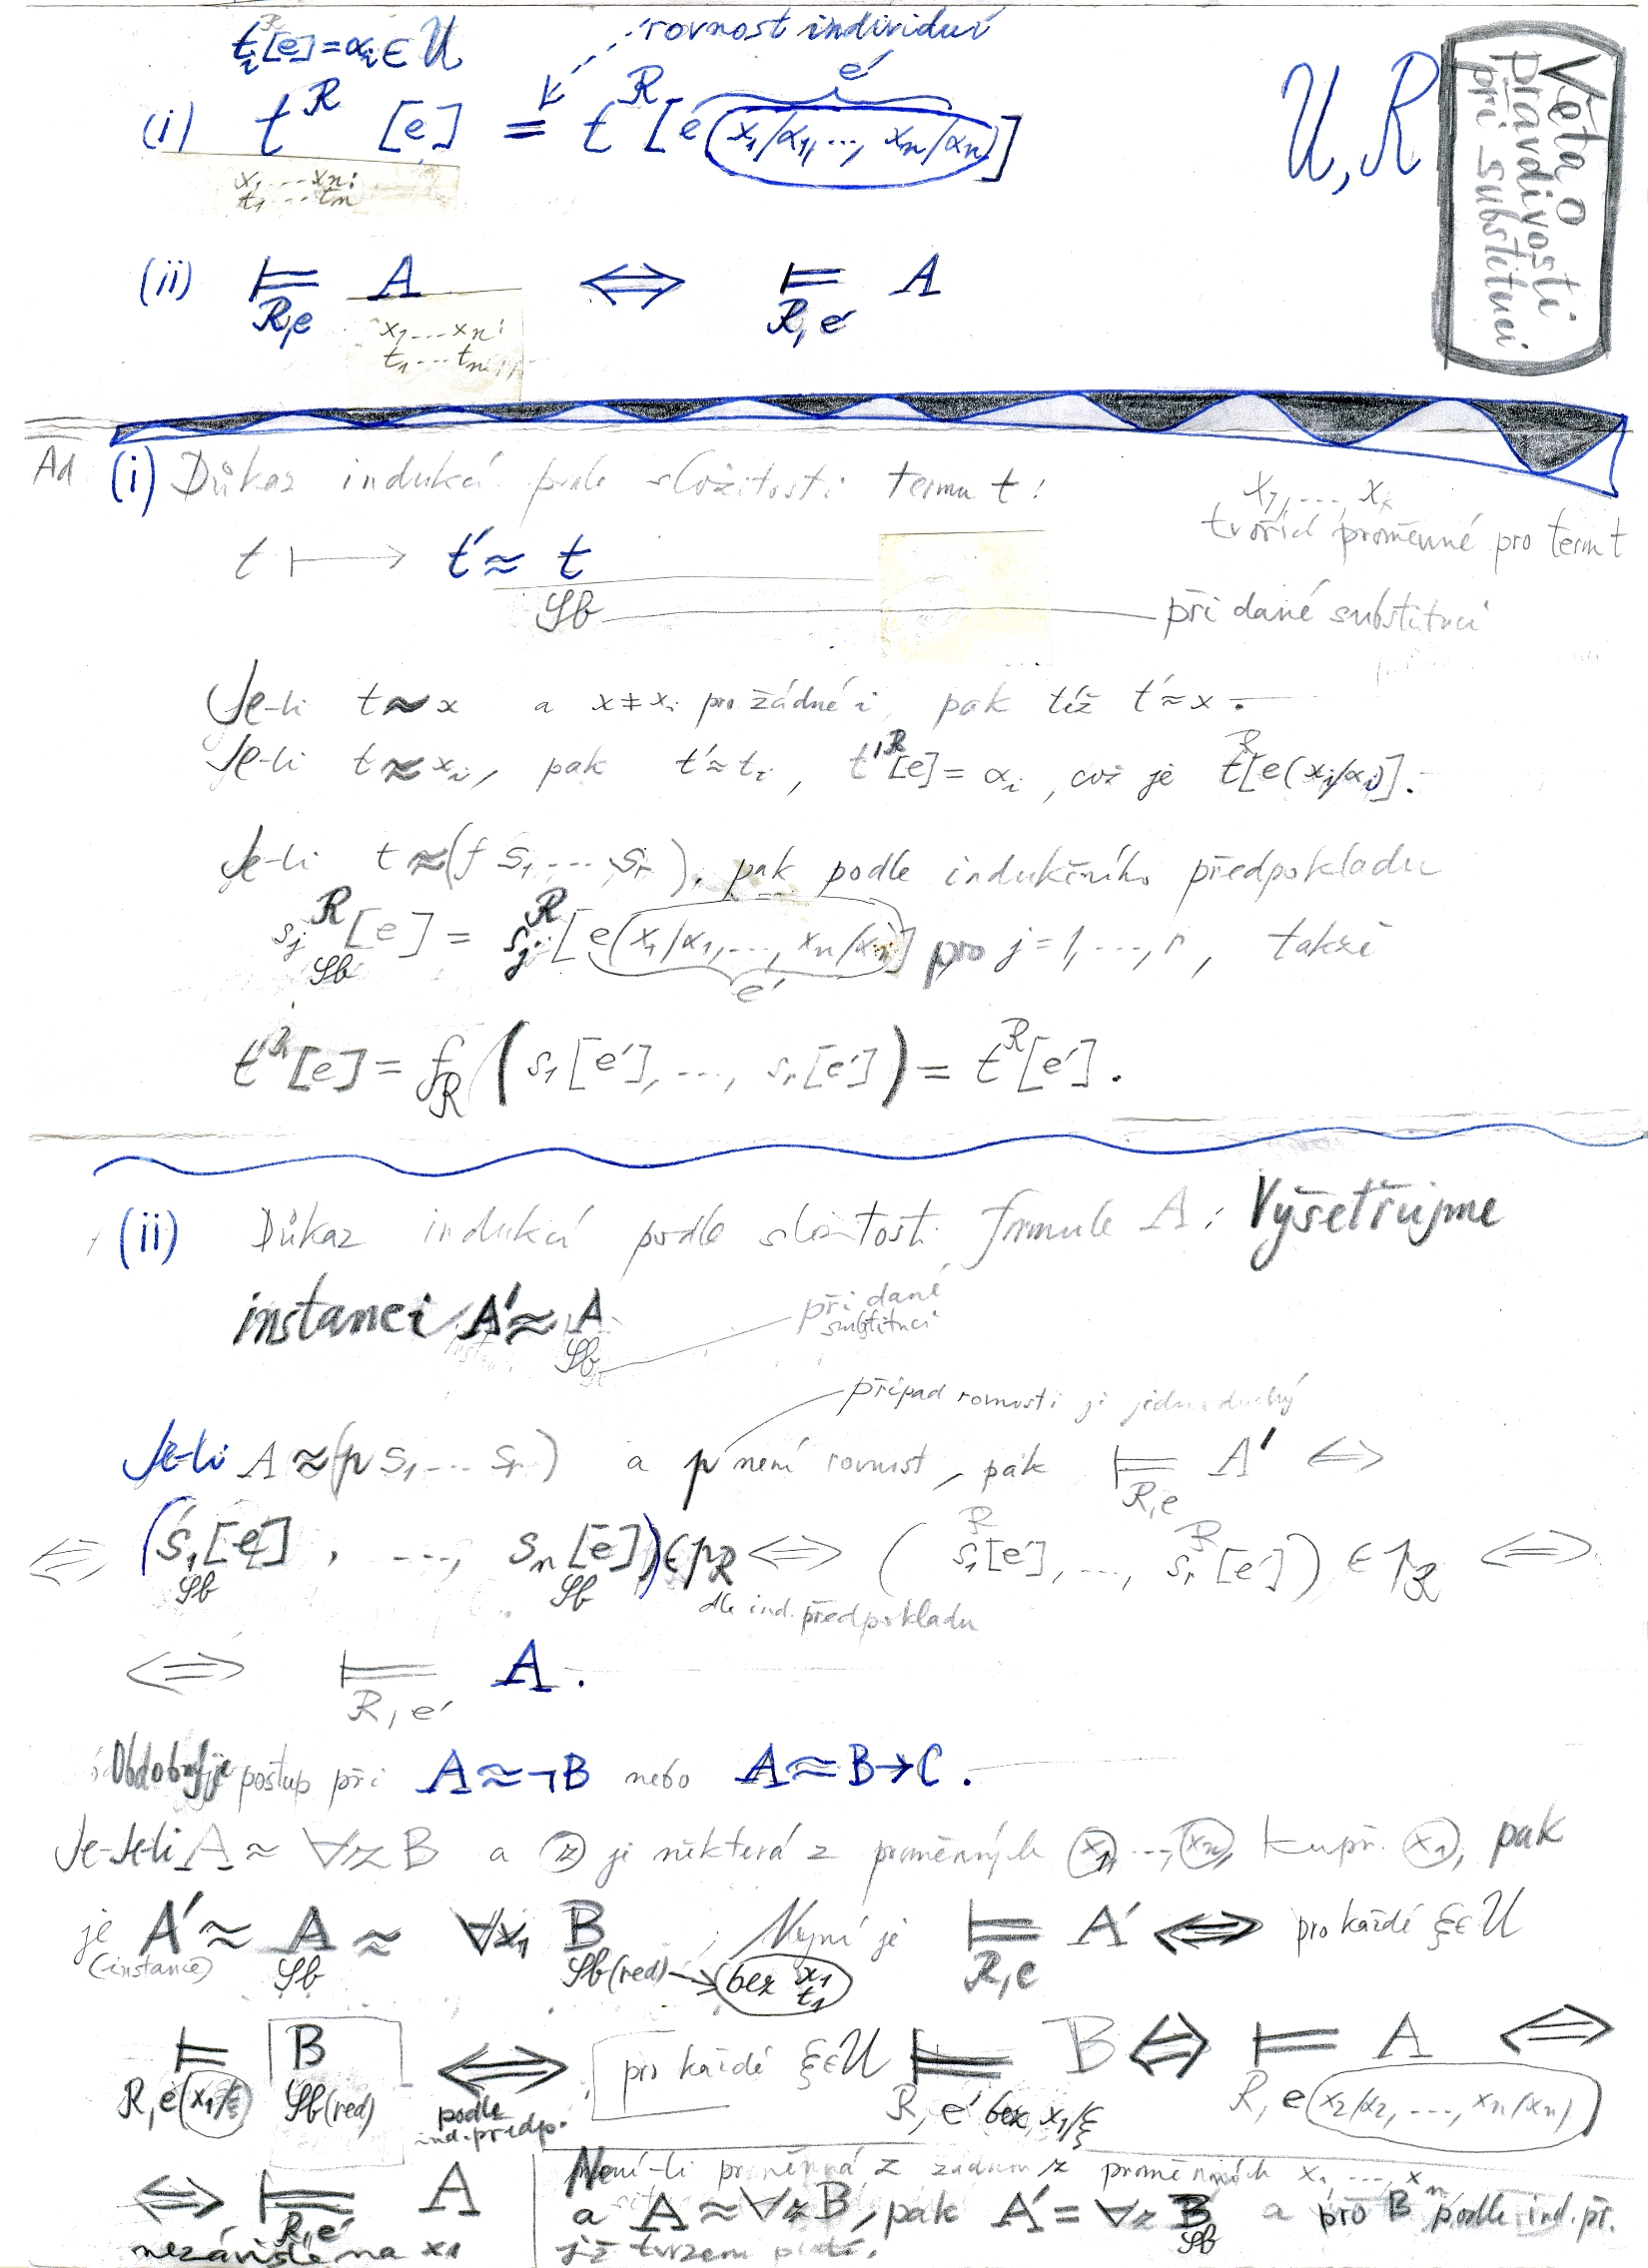 tᵢᴿ[e]=αᵢ∈U
rovnost individuí
(i) tᴿ [e] = tᴿ[e(x₁/α₁,…, xₙ/αₙ)]
e′
x₁…xₙ:
t₁…tₙ
U, R
Věta o
pravdivosti
při substituci
(ii) ⊨ A ⟺ ⊨ A
R,e R,e′
x₁…xₙ:
t₁…tₙ
Ad (i) Důkaz indukcí podle složitosti termu t:
x₁,…, xₖ
tvořící proměnné pro term t
t ⟼ t′≈ t
Sb
při dané substituci
Je-li t≈x a x≠xᵢ pro žádné i, pak též t′≈x.
Je-li t≈xᵢ, pak t′≈tᵢ, t′ᴿ[e]=αᵢ, což je tᴿ[e(xᵢ/αᵢ)].
Je-li t≈(f s₁…sᵣ), pak podle indukčního předpokladu
sⱼᴿ[e] = sⱼᴿ[e(x₁/α₁,…, xₙ/αₙ)] pro j=1,…,r, takže
Sb e′
t′ᴿ[e] = f_R (s₁[e′],…, sᵣ[e′]) = tᴿ[e′].
(ii) Důkaz indukcí podle složitosti formule A: Vyšetřujme
instanci A′≈ A
Sb
při dané
substituci
případ rovnosti je jednoduchý
Je-li A≈(p s₁…sᵣ) a p není rovnost, pak ⊨ A′ ⟺
R,e
⟺ (s₁[e] , …, sₙ[e])∈p_R ⟺ (s₁ᴿ[e′],…, sᵣᴿ[e′]) ∈ p_R ⟺
Sb Sb dle ind. předpokladu
⟺ ⊨ A.
R, e′
Obdobný je postup při A≈¬B nebo A≈B→C.
Je-Je-li A≈ ∀z B a z je některá z proměnných x₁,…,xₙ, kupř. x₁, pak
je A′≈ A ≈ ∀x₁ B ; Nyní je ⊨ A′ ⟺ pro každé ξ∈U
(instance) Sb Sb(red) → bez x₁ t₁ R, e
⊨ B ⟺ pro každé ξ∈U ⊨ B ⟺ ⊨ A ⟺
R, e(x₁/ξ) Sb(red) podle ind.předp. R, e′ bez x₁/ξ R, e(x₂/α₂,…, xₙ/αₙ)
⟺ ⊨ A
R,e′
nezávisle na x₁
Není-li proměnná z žádnou z proměnných x₁,…, xₙ
a A≈∀zB, pak A′= ∀z B a pro B podle ind.př.
Sb
již tvrzení platí.